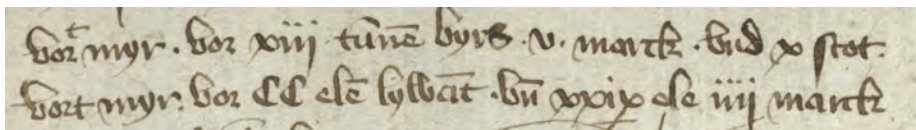 vort myr · vor xiij tūnē byrs · v · marck · vnd x scot ·
vort myr · vor CC elē lywāt · vn̄ xxix ele iiij marck